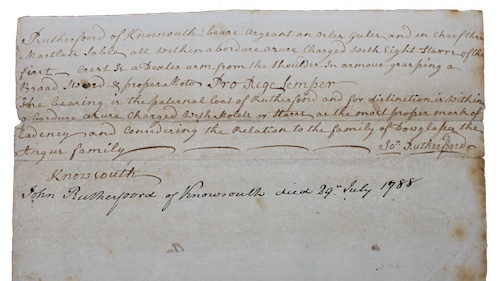 Rutherfoord of Knowsouth bears Argent an orler Gules and in Cheif three
Martlets Sable all within a bordure azure Charged with Eight Starrs of the
first Crest is a Dexter arm from the Shoulder in armour grasping a
Broad Sword & proper Moto Pro Rege Semper
The bearing is the paternal Coat of Rutherfoord and for distinction is within
a bordure azure Charged with Molets or Starrs as the most proper mark of
Cadency and Considering the Relation to the family of Dowglass the
Angus family Jo. Rutherfoord
Knowsouth
John Rutherfoord of Knowsouth died 29th July 1788